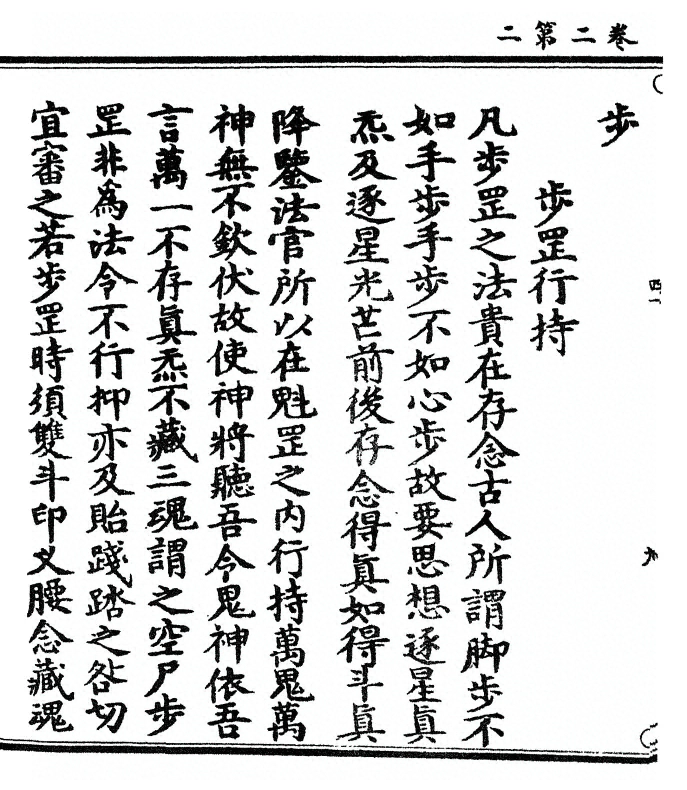 二第二卷
步
步罡行持
凡步罡之法貴在存念古人所謂脚步不
如手步手步不如心步故要思想逐星眞
炁及逐星光芒前後存念得眞如得斗眞
降鑒法官所以在魁罡之内行持萬鬼萬
神無不欽伏故使神將聽吾令鬼神依吾
言萬一不存眞炁不藏三魂謂之空尸步
罡非爲法令不行抑亦及貽踐踏之咎切
宜審之若步罡時須雙斗印叉腰念藏魂